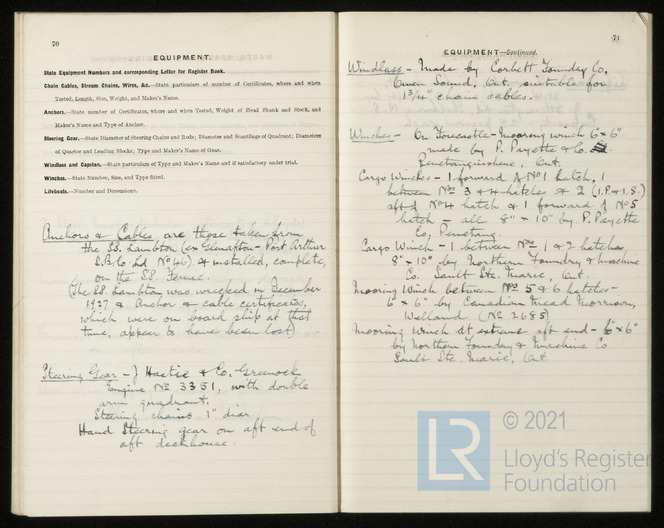 70
EQUIPMENT.
State Equipment Numbers and corresponding Letter for Register Book.
Chain Cables, Stream Chains, Wires, &c.—State particulars of number of Certificates, where and when
Tested, Length, Size, Weight, and Maker's Name.
Anchors.—State number of Certificates, where and when Tested, Weight of Head Shank and Stock, and
Maker's Name and Type of Anchor.
Steering Gear.—State Diameter of Steering Chains and Rods; Diameter and Scantlings of Quadrant; Diameters
of Quarter and Leading Blocks; Type and Maker's Name of Gear.
Windlass and Capstan.—State particulars of Type and Maker's Name and if satisfactory under trial.
Winches.—State Number, Size, and Type fitted.
Lifeboats.—Number and Dimensions.
Anchors & Cables, are those taken from
the SS. Lambton (ex Glenafton - Port Arthur
S.B. Co Ld No 46) & installed, complete,
on the SS.
(The SS. Lambton was wrecked in December
1927 & Anchor & cable certificates,
which were on board ship at that
time, appear to have been lost)
Steering Gear - J Hastie & Co. Greenock
Engine No 3351, with double
arm quadrant.
Steering chains 1" diar
Hand Steering gear on aft end of
aft deckhouse.
71
EQUIPMENT—Continued.
Windlass - Made by Corbett Foundry Co.
Owen Sound, Ont. suitable for
1 3/4" chain cables.
Winches - On Forecastle - Mooring winch 6" x 6"
made by P. Payette & Co.
Penetanguishene, Ont.
Cargo Winches - 1 forward of No 1 hatch, 1
between Nos 3 & 4 hatches & 2 (1.P & 1.S.)
aft of No 4 hatch & 1 forward of No 5
hatch - all 8" x 10" by P. Payette
Co. Penetang.
Cargo Winch - 1 between Nos 1 & 2 hatches,
8" x 10" by Northern Foundry & Machine
Co. Sault Ste. Marie, Ont.
Mooring Winch between Nos 5 & 6 hatches -
6" x 6" by Canadian Mead Morrison,
Welland (No 2685)
Mooring Winch at extreme aft end - 6" x 6"
by Northern Foundry & Machine Co
Sault Ste. Marie, Ont.
LR
© 2021
Lloyd's Register
Foundation